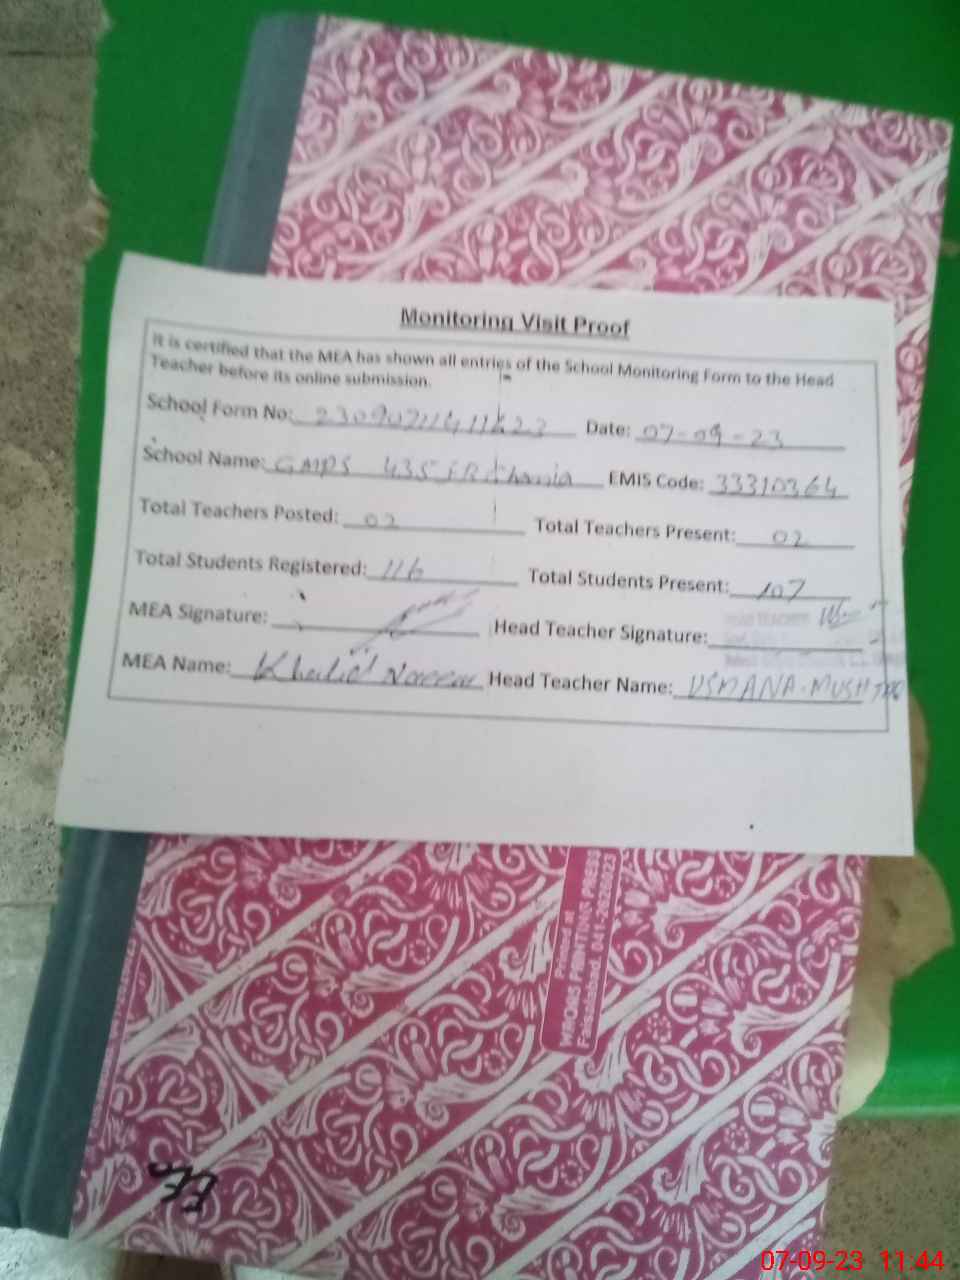 Monitoring Visit Proof
It is certified that the MEA has shown all entries of the School Monitoring Form to the Head
Teacher before its online submission.
School Form No: Date: 07-09-23
School Name: GMPS 435 EMIS Code: 33310364
Total Teachers Posted: 02 Total Teachers Present: 02
Total Students Registered: 116 Total Students Present: 107
MEA Signature: Head Teacher Signature:
HEAD TEACHER
MEA Name: Khalid Naeem Head Teacher Name: USMANA. MUSHTAQ
Printed at
Faisalabad. 041-2626023
07-09-23 11:44